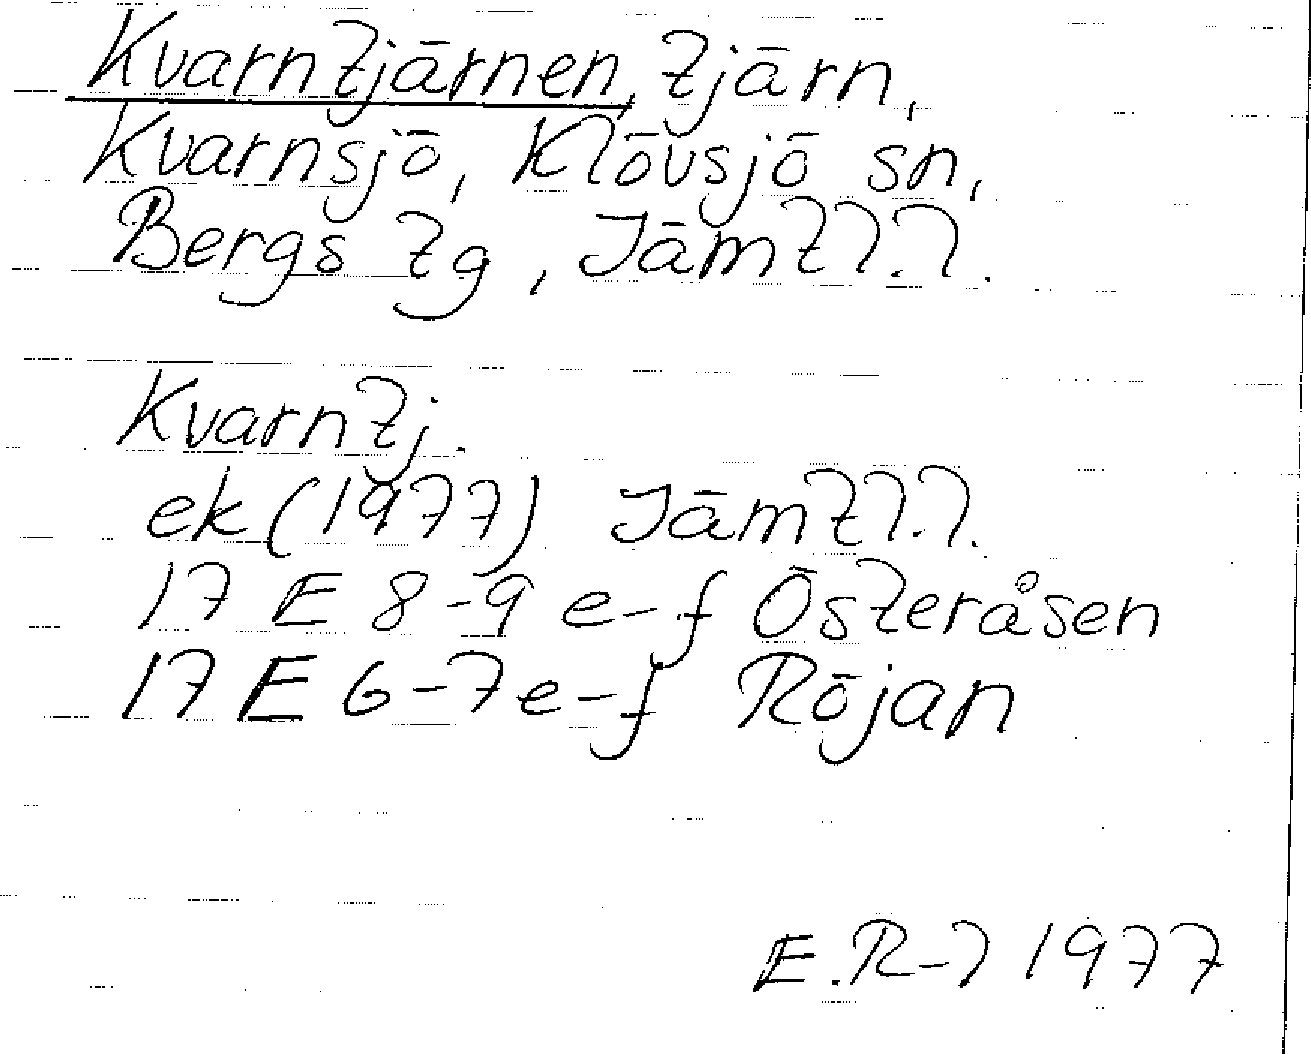 Kvarntjärnen, tjärn,
Kvarnsjö, Klövsjö sn,
Bergs tg, Jämtl.l.
Kvarntj.
ek (1977) Jämtl.l.
17 E 8-9 e-f Österåsen
17 E 6-7 e-f Röjan
E.R-l 1977